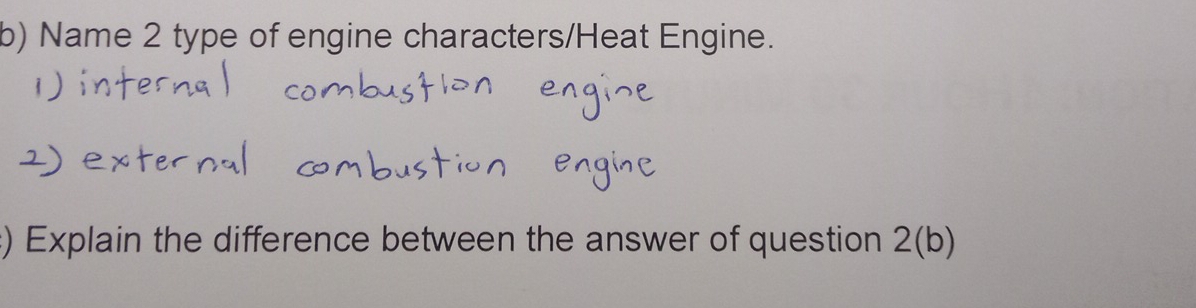 b) Name 2 type of engine characters/Heat Engine.
1) internal combustion engine
2) external combustion engine
) Explain the difference between the answer of question 2(b)